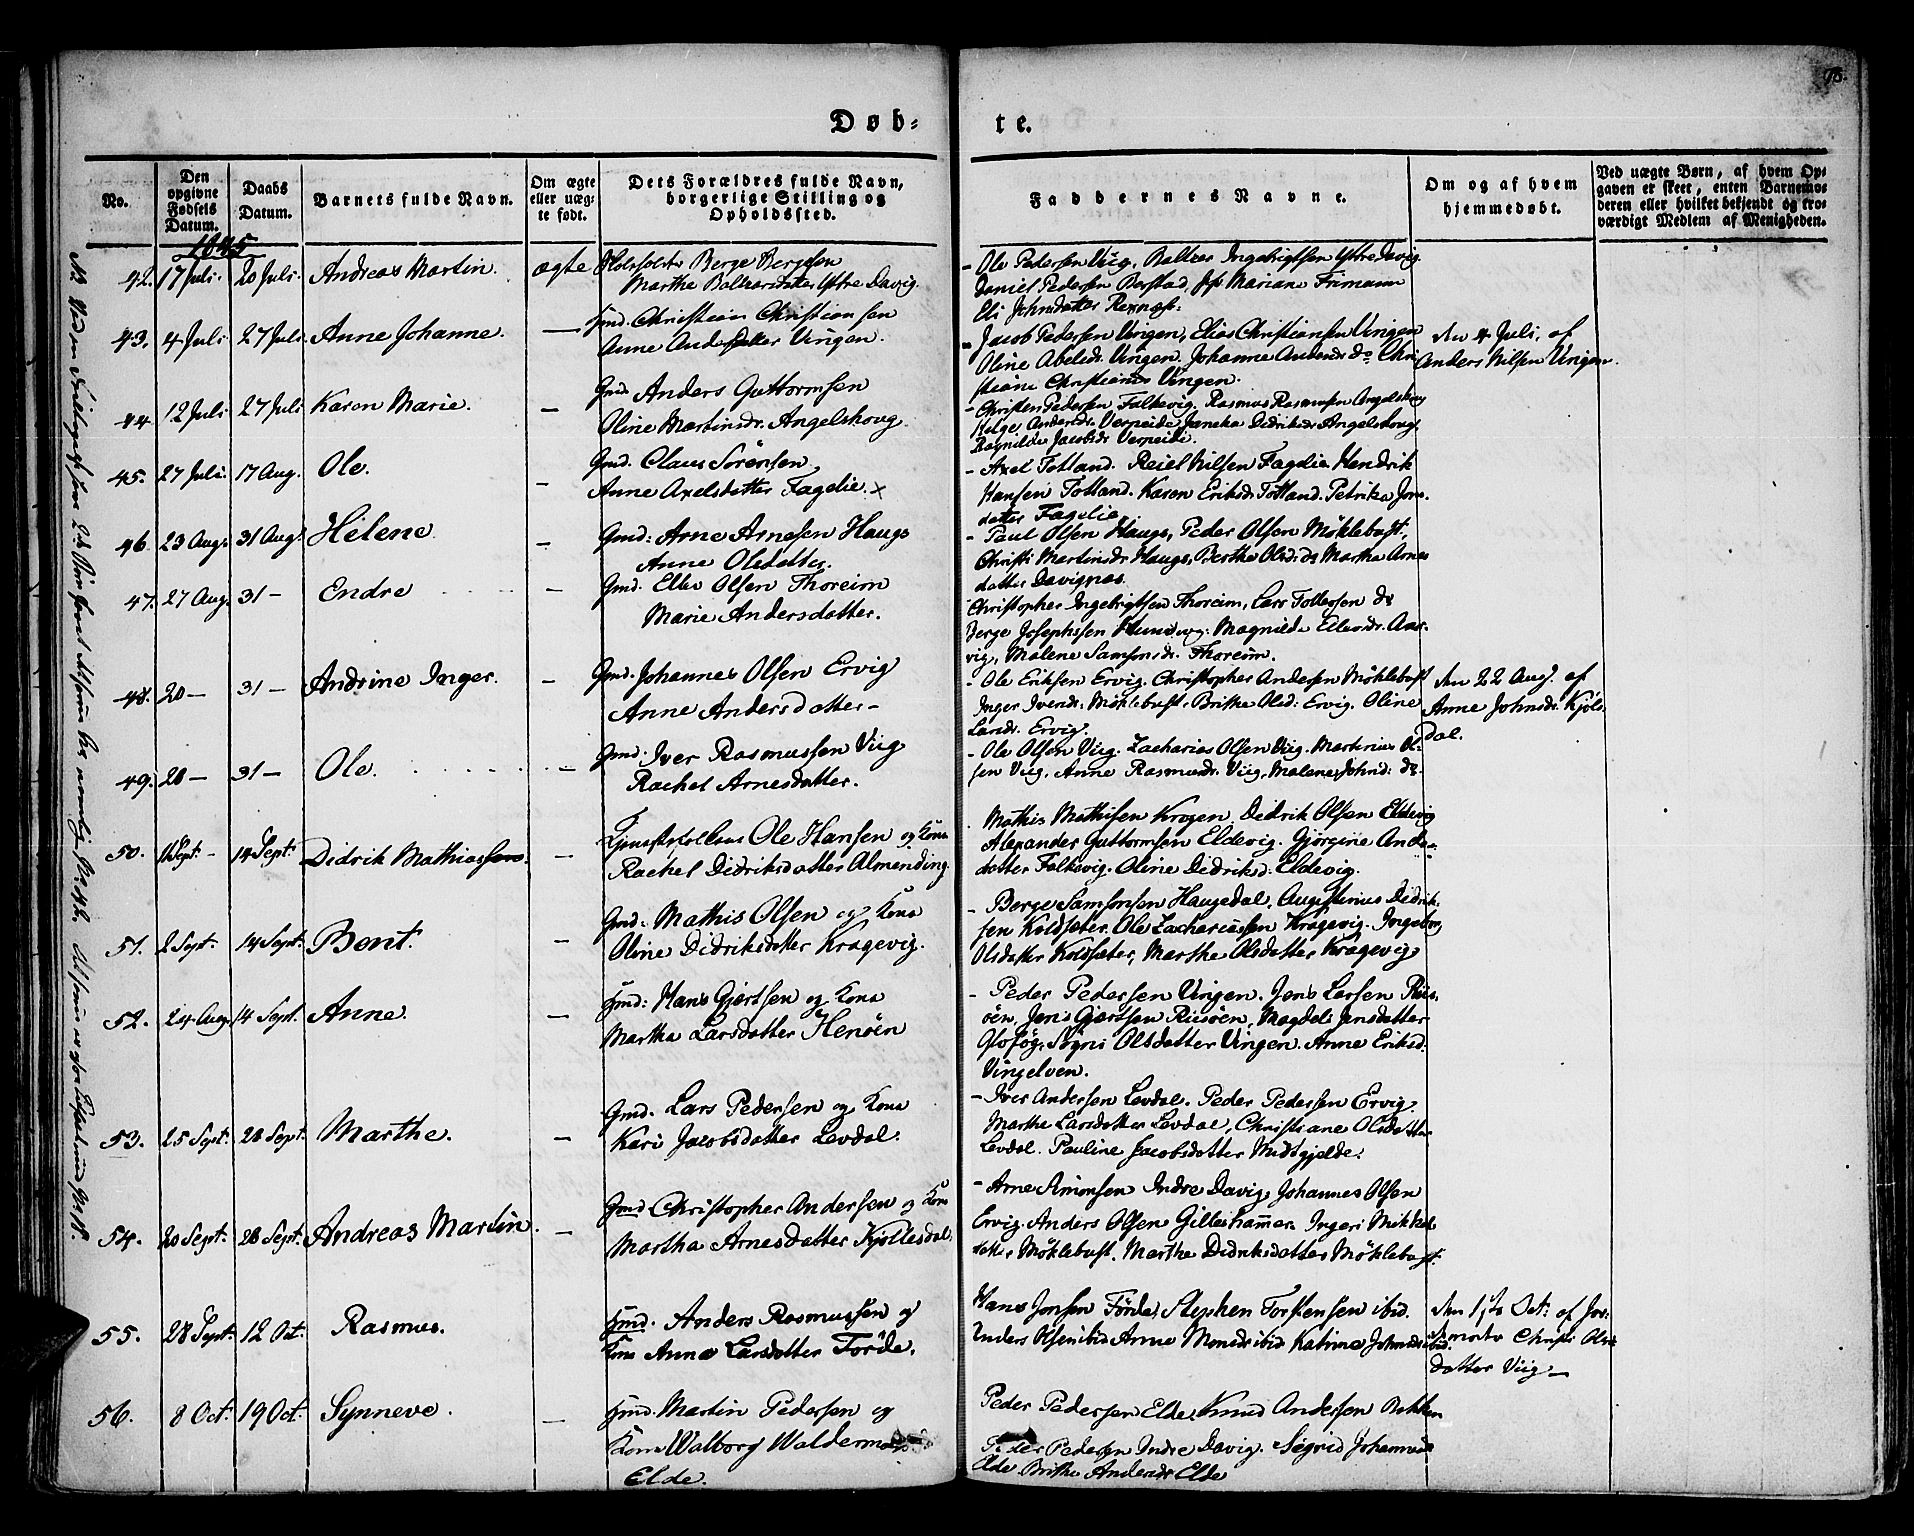 Døb-
te.
No.
Den opgivne Fødsels Datum.
Daabs Datum.
Barnets fulde Navn.
Om ægte eller uægte født.
Dets Forældres fulde Navn, borgerlige Stilling og Opholdsted.
Faddernes Navne.
Om og af hvem hjemmedøbt.
Ved uægte Børn, af hvem Opgaven er skeet, enten Barnemoderen eller hvilket bekjendt og troværdigt Medlem af Menigheden.
1845
42. 17 Juli. 20 Juli. Andreas Martin. ægte
Berge Bergesen
Marthe Baltzarsdatter Ystre Davig.
- Ole Pedersen Viig, Baltzer Ingebrigtsen Ystre Davig
Daniel Pedersen Berstad, Mariane Frimann
Eli Johnsdatter
43. 4 Juli 27 Juli Anne Johanne. —
Gmd. Christian Christiansen
Anne Andersdatter Vingen.
- Jacob Pedersen Vingen, Elias Christiansen Vingen
Oline Abelsdr. Vingen. Johanne Andersdr do Chri-
stiane Christiansdr Vingen.
den 4 Juli, af
Anders Nilsen Vingen.
44. 12 Juli 27 Juli Karen Marie. —
Gmd Anders Guttormsen
Oline Martinsdr. Angelskovg.
- Christen Pedersen Falkevig. Rasmus Rasmusen Angelskog
Helge Andersdr. Verpeide Janika Didriksdr Angelskovg,
Ragnilde Jacobsdr Verpeide.
45. 27 Juli. 17 Aug. Ole. —
Gmd. Claus Sörensen
Anne Axelsdatter Fagelie. x
- Axel Totland. Reiel Nilsen Fagelie Hendrik
Hansen Totland. Karen Eriksdr Totland. Petrika Jons-
datter Fagelie
46 23 Aug. 31 Aug. Helene. —
Gmd: Arne Arnesen Haugs
Anne Olsdatter.
- Paul Olsen Haugs, Peder Olsen Möklebust,
Christi Martinsdr Haugs, Berthe Olsd: do Martha Arnes
datter Davignæs.
47. 27 Aug. 31 — Endre —
Gmd. Ellev Olsen Thoreim
Marie Andersdatter.
Christopher Ingebrigtsen Thoreim, Lars Tollefsen do
Berge Josephsen Magnilde Ellevsdr. Aar-
vig, Malene Samsonsdr. Thoreim.
48. 20 — 31 — Andrine Inger. —
Gmd. Johannes Olsen Ervig
Anne Andersdatter —
- Ole Eriksen Ervig. Christopher Andersen Möklebust
Inger Iversdr: Möklebust. Brithe Olsd: Ervig. Oline
Larsdr. Ervig.
den 22 Aug. af
Anne Johnsdr Kjöls-
dal.
49. 28 — 31 — Ole. —
Gmd. Iver Rasmussen Viig
Rachel Arnesdatter.
- Ole Olsen Viig. Zacharias Olsen Viig. Martinus Ol-
sen Viig. Anne Rasmusdr. Viig. Malene Johnsd: do.
50. 1 Sept. — 14 Sept: Didrik Mathiassen. —
Ole Hansen og Kona
Rachel Didriksdatter Almending.
Mathis Mathisen Krogen, Didrik Olsen Eldevig
Alexander Guttormsen Eldevig. Gjorgine Anders-
datter Falkevig. Oline Didriksd: Eldevig.
51. 2 Sept: 14 Sept: Bent. —
Gmd: Mathis Olsen og Kona
Oline Didriksdatter Kragevig.
- Berge Samsonsen Haugedal, Augustinus Didrik-
sen Koldsæter. Ole Zachariassen Kragevig. Ingebor
Olsdatter Koldsæter, Marthe Olsdatter Kragevig
52. 24 Aug. 14 Sept. Anne. —
Gmd: Hans Gjertsen og Kona
Martha Larsdatter Henöen
- Peder Pedersen Vingen. Jens Larsen Rus-
öen, Jens Gjertsen Rusöen, Magdeli Jensdatter
Sögni Olsdatter Vingen. Anne Eriksd:
Vingelven.
53. 25 Sept: 28 Sept. Marthe. —
Gmd. Lars Pedersen og Kona
Kari Jacobsdatter Levdal.
- Iver Andersen Levdal. Peder Pedersen Ervig.
Marthe Larsdatter Levdal, Christiane Olsdatter
Levdal. Pauline Jacobsdatter Midtgjelde.
54. 20 Sept: 28 Sept: Andreas Martin. —
Gmd Christopher Andersen og Kona
Martha Arnesdatter Kjöllesdal.
- Arne Simonsen Indre Davig, Johannes Olsen
Ervig. Anders Olsen Gilleshammer. Ingeri Mikkels
datter Möklebust. Marthe Didriksdatter Möklebust.
55. 28 Sept: 12 Oct. Rasmus. —
Gmd. Anders Rasmussen og
Kona Anne Larsdatter Förde.
Hans Jonsen Förde, Stephen Torstensen ibid.
Anders Olsen ibid Anne Monsdr ibid Katrine Johnsdr ibid.
den 1ste Oct: af Jor-
demoder Christi Ols-
datter Viig —
56. 8 Oct: 19 Oct: Synneve. —
Gmd. Martin Pedersen og
Kona Walborg
Elde.
Peder Pedersen Elde, Knud Andersen Bakken
Peder Pedersen Indre Davig. Sögrid Johannesd:
Elde Brithe Andersdr Elde